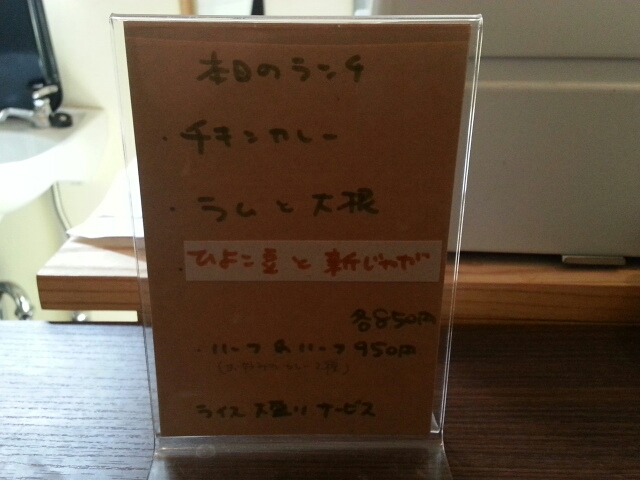 本日のランチ
・チキンカレー
・ラムと大根
・ひよこ豆と新じゃが
各850円
・ハーフ&ハーフ950円
(お好みのカレー2種)
ライス大盛りサービス